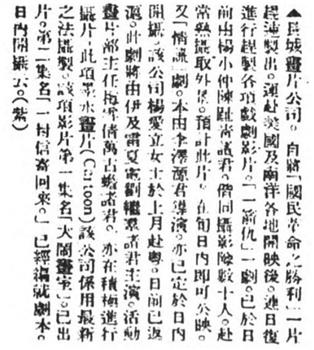 ▲長城畫片公司。自將「國民革命之勝利」一片
趕速製出。運赴美國及南洋各地開映後。連日復
進行趕製各項戲劇影片。「一箭仇」一劇。已於日
前由楊小仲陳趾青諸君。偕同攝影隊數十人。赴
常熟攝取外景。預計此片。在旬日內。即可公映。
又「情謊」劇本。由李澤源君導演。亦已定於日內
開攝。該公司楊愛立女士於上月赴粵。日前已返
滬。此劇將由伊及雷夏電劉繼羣諸君主演。活動
畫片部主任梅雪儔萬古蟾諸君。亦在積極進行
攝片。此項墨水畫片(Cartoon)該公司係用最新
之法攝製。該項影片第一集名「大鬧畫室」。已出
片。第二集名「一封信寄回來。」已經編就劇本。
日內開攝云。(紫)